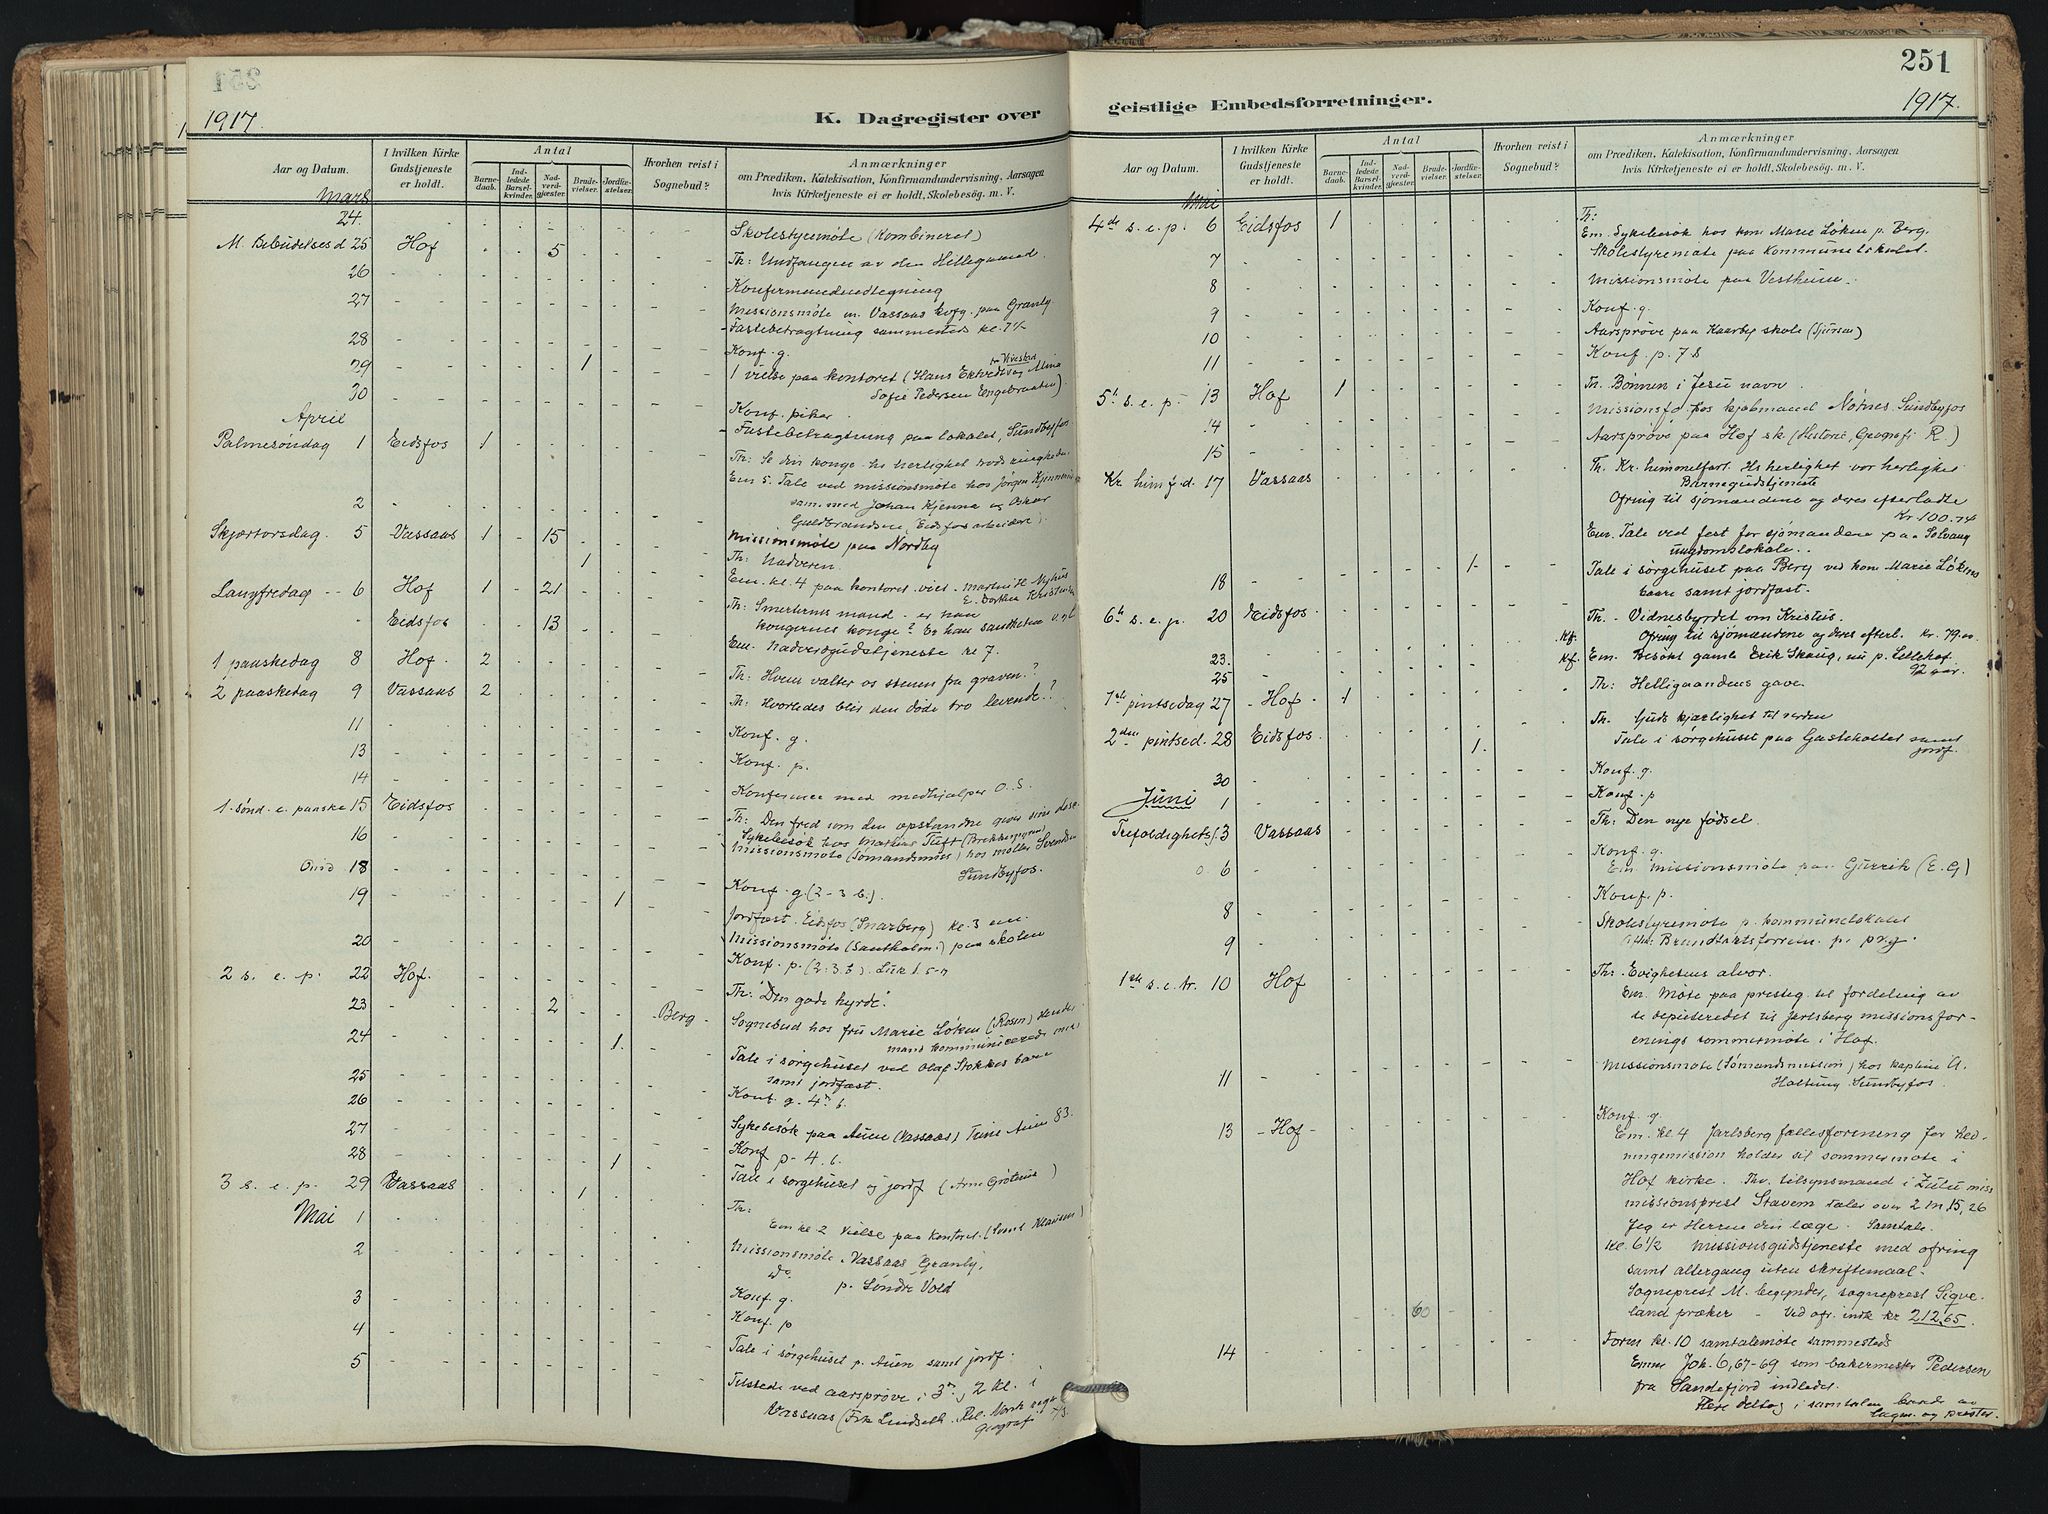 251
1917.
K. Dagregister over
Aar og Datum.
I hvilken Kirke Gudstjeneste er holdt.
Antal
Barnedaab.
Indledede Barselkvinder.
Nadverdgjæster.
Brudevielser.
Jordfæstelser.
Hvorhen reist i Sognebud?
Anmærkninger
om Prædiken, Katekisation, Konfirmandundervisning, Aarsagen
hvis Kirketjeneste ei er holdt, Skolebesög. m. V.
Mars
24. Skolestyremøte (Kombineret)
M. Bebudelses d 25 Hof 5 Th: Undfangen av den Helligaand.
26 Konfirmandudlegning
27 Missionsmøte m. Vassaas kvfg. paa Granly
Fastebetragtning sammesteds kl. 7½
28 Konf. g.
29 1 1 vielse paa kontoret (Hans
Sofie Pedersen Engebraaten).
30 Konf. piker.
Fastebetragtning paa lokalet, Sundbyfos
April
Palmesøndag 1 Eidsfos 1 Th: Se din konge
Em 5. Tale ved missionsmøte hos Jørgen
sam. med Johan Kjenna og Oskar
Guldbrandsen, Eidsfos arbeidere).
2 Missionsmøte paa Nordby
Skjærtorsdag. 5 Vassaas 1 15 Th: Nadveren.
1 Em. kl. 4 paa kontoret viet. Martin H. Nyhus
Langfredag 6 Hof 1 21 Th: Smerternes mand - er han
kongernes konge? Er han sandheten
Eidsfos 13 Em. Nadverdgudstjeneste kl 7.
1 paaskedag 8 Hof 2 Th: Hvem vælter os stenen fra graven?
2 paaskedag 9 Vassaas 2 Th: Hvorledes blir den døde tro levende?
11 Konf. g.
13 Konf. p.
14 Konference med medhjælper O. S.
1. sønd. e. paaske 15 Eidsfos Th: Den fred som den opstandne giver sine
16 Sykebesøk hos Mathias Tuft
Missionsmøte (Sømandsmis) hos møller Svendsen
Sundbyfos.
Onsd 18 Konf. g (2-3 b.)
19 1 Jordfæst. Eidsfos (Snarberg) kl. 3 em.
Missionsmøte paa skolen
20 Konf. p. (2:3. b).
2 s. e. p. 22 Hof. Th: "Den gode hyrde".
23 2 Berg Sognebud hos fru Marie Løken (Rosen)
mand kommunicerede med
24 1. Tale i sørgehuset ved Olaf Stokkes barn
samt jordfæst.
25 Konf. g. 4de b.
26 Sykebesøk paa Auen (Vassaas) Trine Auen 83.
27 Konf p - 4. b.
28 1 Tale i sørgehuset og jordf
3 s. e. p. 29 Vassaas 1 Th:
Em kl 2 Vielse paa kontoret.
Mai 1 Missionsmøte. Vassaas Granly.
2 do. p. Søndre Vold
3 Konf. g.
4 Konf. p
5 Tale i sørgehuset p. Auen samt jordf.
Tilstede ved aarsprøve i 3de, 2 kl. i
Vassaas (Frk Lindseth. Rel. Norsk
Geograf
251
1917.
geistlige Embedsforretninger.
Aar og Datum.
I hvilken Kirke Gudstjeneste er holdt.
Antal
Barnedaab.
Indledede Barselkvinder.
Nadverdgjæster.
Brudevielser.
Jordfæstelser.
Hvorhen reist i Sognebud?
Anmærkninger
om Prædiken, Katekisation, Konfirmandundervisning, Aarsagen
hvis Kirketjeneste ei er holdt. Skolebesög. m. V.
Mai
4de s. e. p. 6 Eidsfos 1 Th:
Em. Sykebesøk hos kone Marie Løken p. Berg.
7 Skolestyremøte paa Kommunelokalet.
8 Missionsmøte paa Vestheim.
9 Konf. g.
10 Aarsprøve paa Haarby skole
11 Konf. p. 7 b
5te s. e. p. 13 Hof 1 Th. Bønnen i Jesu navn.
Missionsfo. hos kjøbmand Nøtnes, Sundbyfos
14 Aarsprøve paa Hof sk. (Historie, Geografi R.)
15
Kr himf. d. 17 Vassaas Th. Kr. himmelfart. Hs herlighet vor herlighet
Barnegudstjeneste
Ofring til sjømændene og deres efterladte
Kr. 100.74
Em. Tale ved fest for sjømændene paa Solvang
ungdomslokale.
18 1. Tale i sørgehuset paa Berg ved kone Marie Løkens
baare samt jordfæst.
6te s. e. p. 20 Eidsfos Th. - Vidnesbyrdet om Kristus.
Kf. Ofring til sjømændene og deres efterl. kr. 79.00
23. Kf. Em. Besøkt gamle Erik Skaug, nu p. Lillehof
92 aar.
25
1ste pintsedag 27 Hof 1 Th: Helligaandens gave.
2den pintsed. 28 Eidsfos Th. Guds kjærlighet til verden
1. Tale i sørgehuset paa samt
jordf.
30 Konf. g.
Juni 1 Konf. p
Trefoldighets f. 3 Vassaas Th: Den nye fødsel.
o. 6 Konf. g.
Em. missionsmøte paa Gurrik (E. G)
8 Konf. p.
9 Skolestyremøte p. Kommunelokalet
p. prg.
1ste s. e. tr. 10 Hof Th: Evighetens alvor.
Em. Møte paa prestg. til fordeling av
de deputeredet til Jarlsberg missionsfor-
enings sommermøte i Hof.
11 Missionsmøte (Sømandsmission) hos kaptein A.
Holtung. Sundbyfos.
13 Hof Konf. g.
Em. kl. 4 Jarlsberg fællesforening for hed-
ningemission holder sit sommermøte i
Hof kirke. Thv. tilsynsmand i Zulu miss
missionsprest Stavem taler over 2 M. 15, 26
Jeg er Herren din læge. Samtale.
Kl. 6 1/2 missionsgudstjeneste med ofring
samt altergang uten skriftemaal.
Sogneprest M. begynder, sogneprest Sigve-
60 land præker - Ved ofr. indk kr 212.65.
14 Form kl. 10 samtalemøte sammesteds
Emner Joh. 6, 67-69 som bakermester Pedersen
fra Sandefjord indledet.
Flere deltog i samtalen baade av
lægm. og prester.